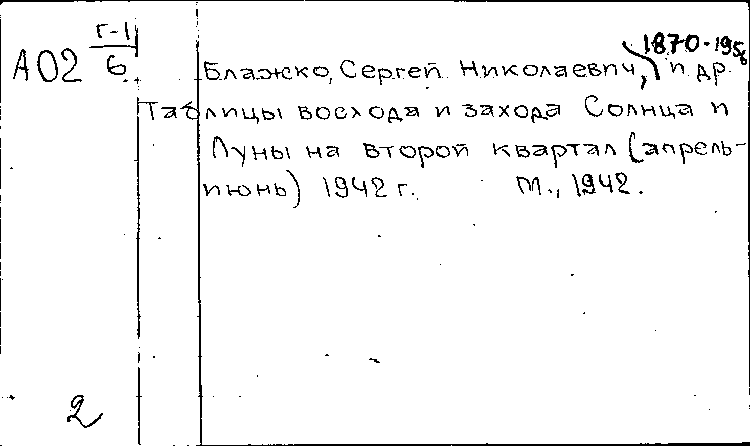 1870-1956
А02 Г-1/6
Блажко, Сергей Николаевич, и др.
Таблицы восхода и захода Солнца и
Луны на второй квартал (апрель-
июнь) 1942 г. М., 1942.
2